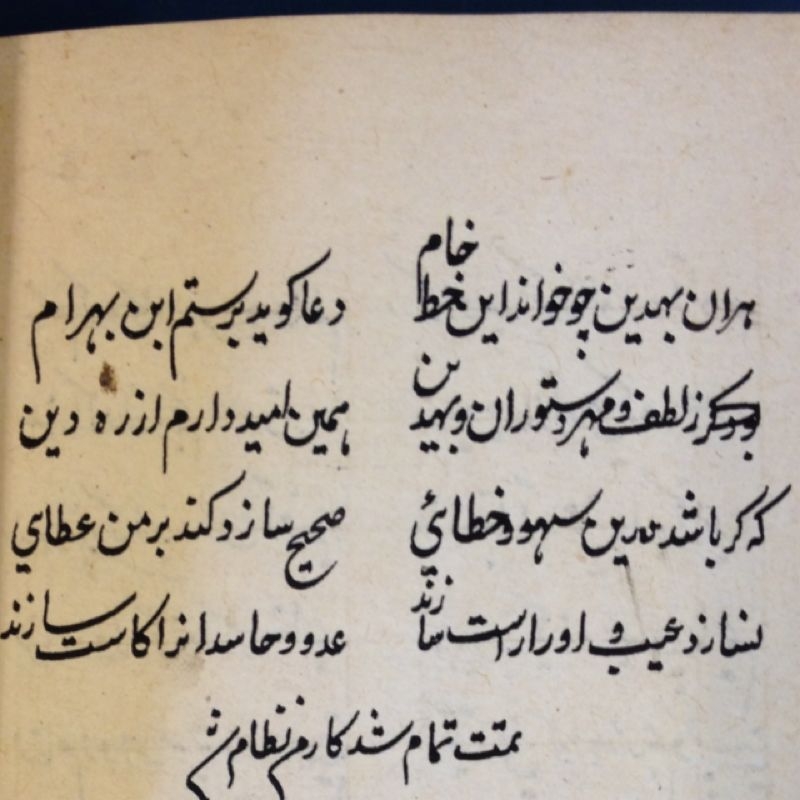 هران بهدین چو خواند این خط خام دعا کوید برستم ابن بهرام
دکر ز لطف و مهر دستوران و بهدین همین امید دارم از ره دین
که کر باشد درین سهو و خطائي صحیح سازد کند بر من عطاي
نسازد عیب و اورا راست سازند عدو و حاسدانرا کاست سازند
تمت تمام شد کارمن نظام شد